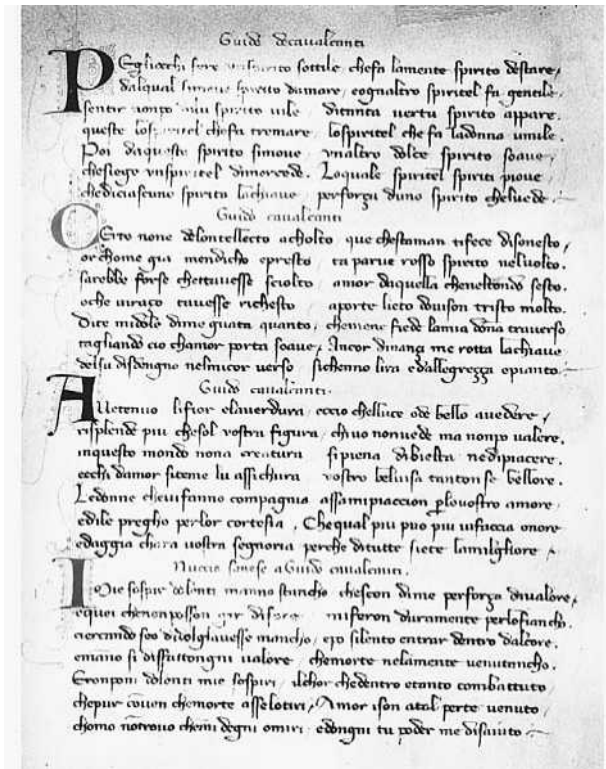 Guido decavalcanti
PEgliocchi fere unspirito sottile / chefa lamente spirito destare /
dalqual simove spirito damare / eognaltro spiritel fa gentile
sentir nonpo diu spirito vile / ditanta vertu spirito appare
queste lospiritel chefa tremare / lospiritel che fa ladonna umile.
Poi daqueste spirito simove / unaltro dolce spirito soave /
chesiegue unspiritel dimercede. Loquale spiritel spiriti piove
chediciascuno spirito lachiave / perforça duno spirito cheluede
Guido cavalcanti
CErto none delontellecto acholto / que chestaman tifece disonesto /
or chome gia mendicho epresto / ta parve rosso spirito neluolto.
sarebbe forse chettavesse sciolto / amor daquella cheneltondo sesto.
oche viraço tavesse richesto / aporte lieto dovison tristo molto.
Dite midole dime guata quanto / chemene fiede lamia dona traverso
tagliando cio chamor porta soave / Ancor dinança me rotta lachiave
delsu disdengno nelmicor verso / sichenno lira edallegreçça epianto
Guido cavalcanti.
AVetenuo lifior elaverdura / eccio chelluce ode bello avedere /
risplende piu chesol vostra figura / chivo nonvede ma nonpo valere.
inquesto mondo nona creatura / sipiena dibielta nedipiacere.
echi damor siteme lu assichura / vostro belvisa tanton se bellore.
Ledonne chevifanno compagnia / assamipiaccion plovostro amore /
edile pregho perlor cortesia / Chequal piu puo piu vifaccia onore
edaggia chara vostra segnoria / perche ditutte siete lamilgliore
Nuccio sanese a Guido cavalcanti.
IMie sospir dolenti manno stancho / chescon dime perforça divalore /
equei chenonposson gir difore / miferon duramente perlofiancho.
cercando soo divolglavesse mancho / epo silento entrar dentro dalcore.
emano si disfattongni valore / chemorte nelamente venutancho.
Eronponi dolonti mie sospiri / ilchor chedentro etanto combattuto
chepur coven chemorte asselotiri / Amor ison atal perte venuto /
chomo notrovo chemi degni omiri / edongni tu poder me disaiuto